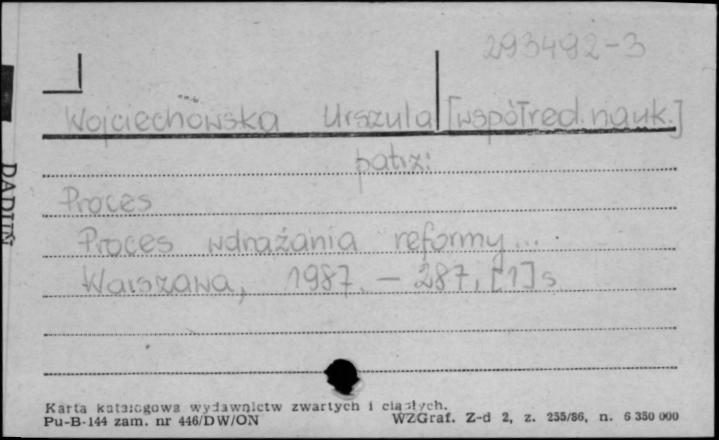 293492-3
Wojciechowska Urszula [współred. nauk.]
patrz:
Proces
Proces wdrażania reformy...
Warszawa, 1987. — 287, [1] s.
Karta katalogowa wydawnictw zwartych i ciągłych.
Pu-B-144 zam. nr 446/DW/ON WZGraf. Z-d 2, z. 255/86, n. 6 350 000